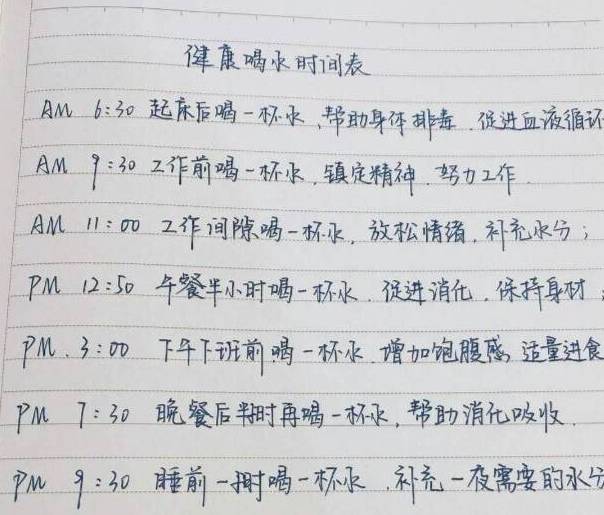 健康喝水时间表
AM 6:30 起床后喝一杯水、帮助身体排毒. 促进血液循环
AM 9:30 工作前喝一杯水, 镇定精神. 努力工作.
AM 11:00 工作间隙喝一杯水, 放松情绪, 补充水分;
PM 12:50 午餐半小时喝一杯水. 促进消化. 保持身材;
PM. 3:00 下午下班前喝一杯水 增加饱腹感 适量进食
PM 7:30 晚餐后半时再喝一杯水, 帮助消化吸收.
PM 9:30 睡前一时喝一杯水. 补充一夜需要的水分